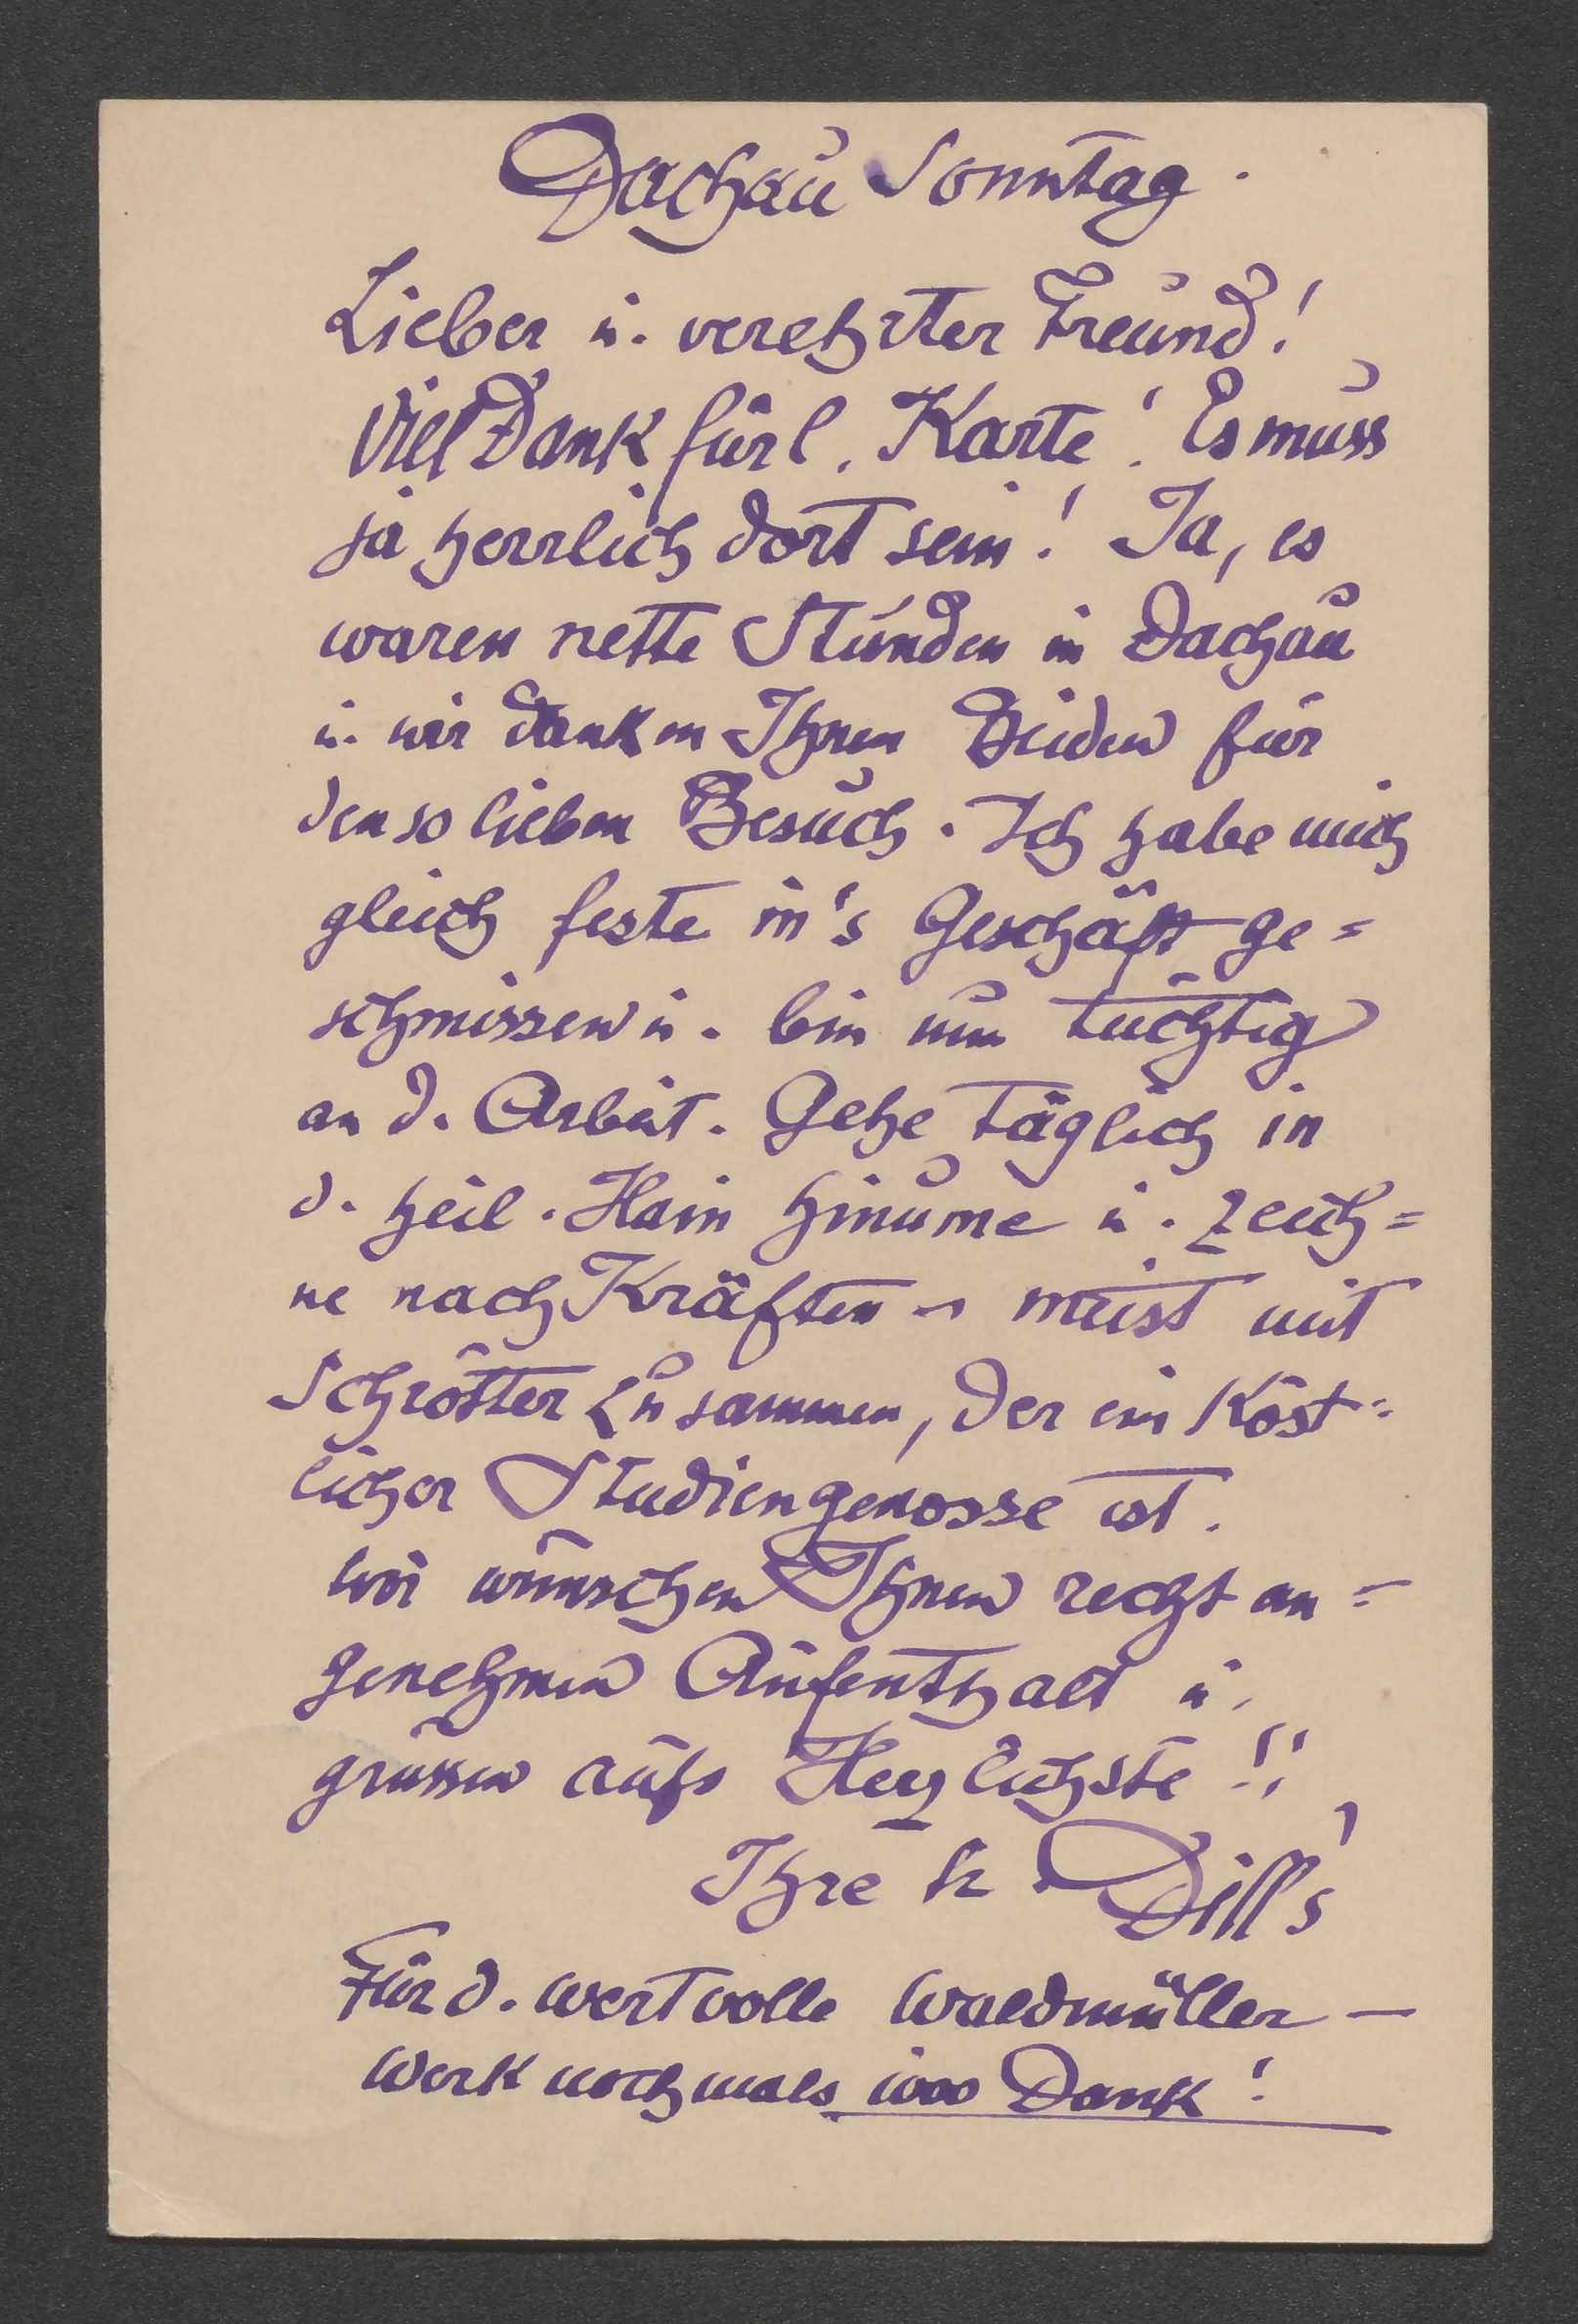 Dachau Sonntag.
Lieber u. verehrter Freund!
Viel Dank für l. Karte! Es muss
ja herrlich dort sein! Ja, es
waren nette Stunden in Dachau
u. wir danken Ihnen Beiden für
den so lieben Besuch. Ich habe mich
gleich feste in's Geschäft ge=
schmissen u. bin nun tüchtig
an d. Arbeit. Gehe täglich in
d. heil. Hain hinume u. zeich=
ne nach Kräften – meist mit
Schrötter zusammen, der ein köst=
licher Studiengenosse ist.
Wir wünschen Ihnen recht an=
genehmen Aufenthalt u.
grüssen aufs Herzlichste!!
Ihre Dill's
Für d. wertvolle Waldmüller –
Werk nochmals 1000 Dank!